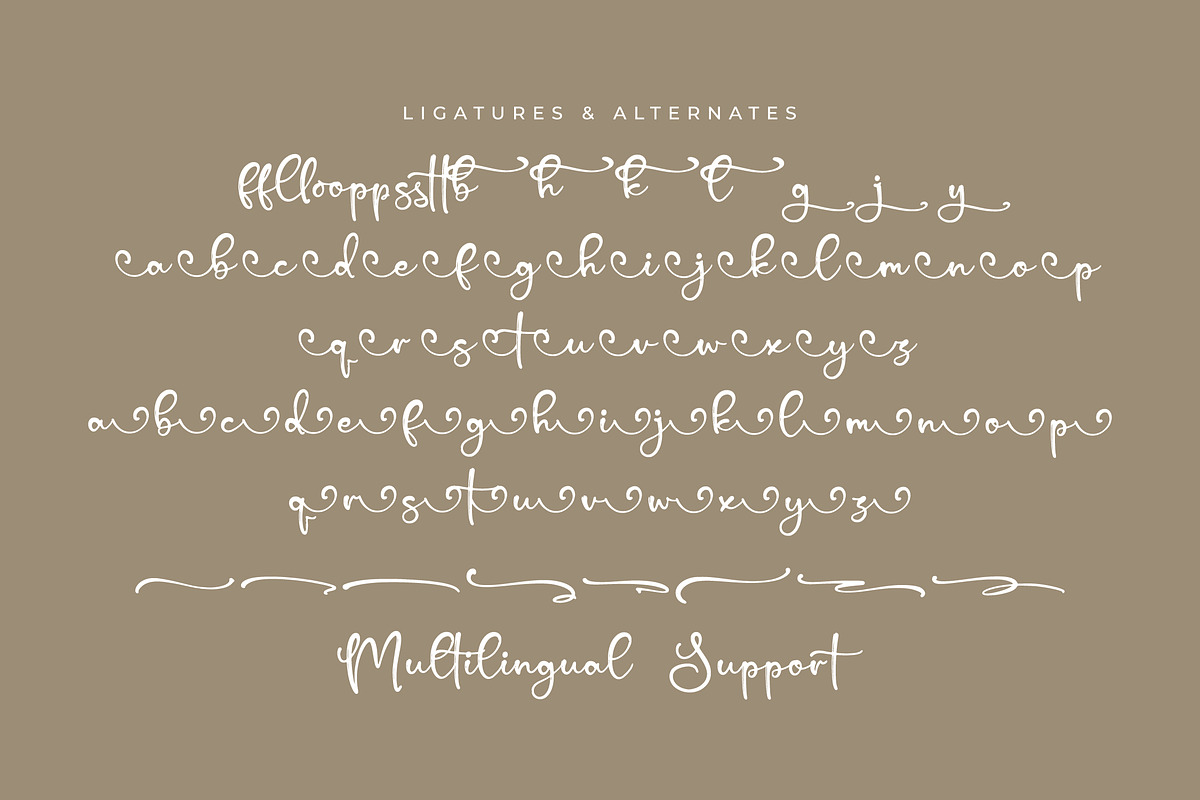 LIGATURES & ALTERNATES
ffllooppssttb h k l g j y
a b c d e f g h i j k l m n o p
q r s t u v w x y z
a b c d e f g h i j k l m n o p
q r s t u v w x y z
Multilingual Support